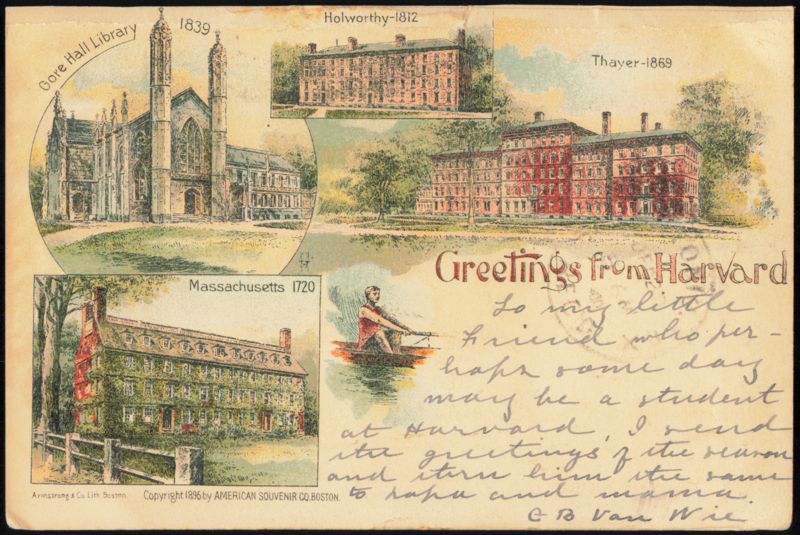 Gore Hall Library 1839
Holworthy-1812
Thayer-1869
Massachusetts 1720
Greetings from Harvard
To my little
friend who per-
haps some day
may be a student
at Harvard, I send
the greetings of the season
and thru him the same
to papa and mama.
C B Van Wie
Armstrong & Co. Lith. Boston.
Copyright 1896 by AMERICAN SOUVENIR CO. BOSTON.